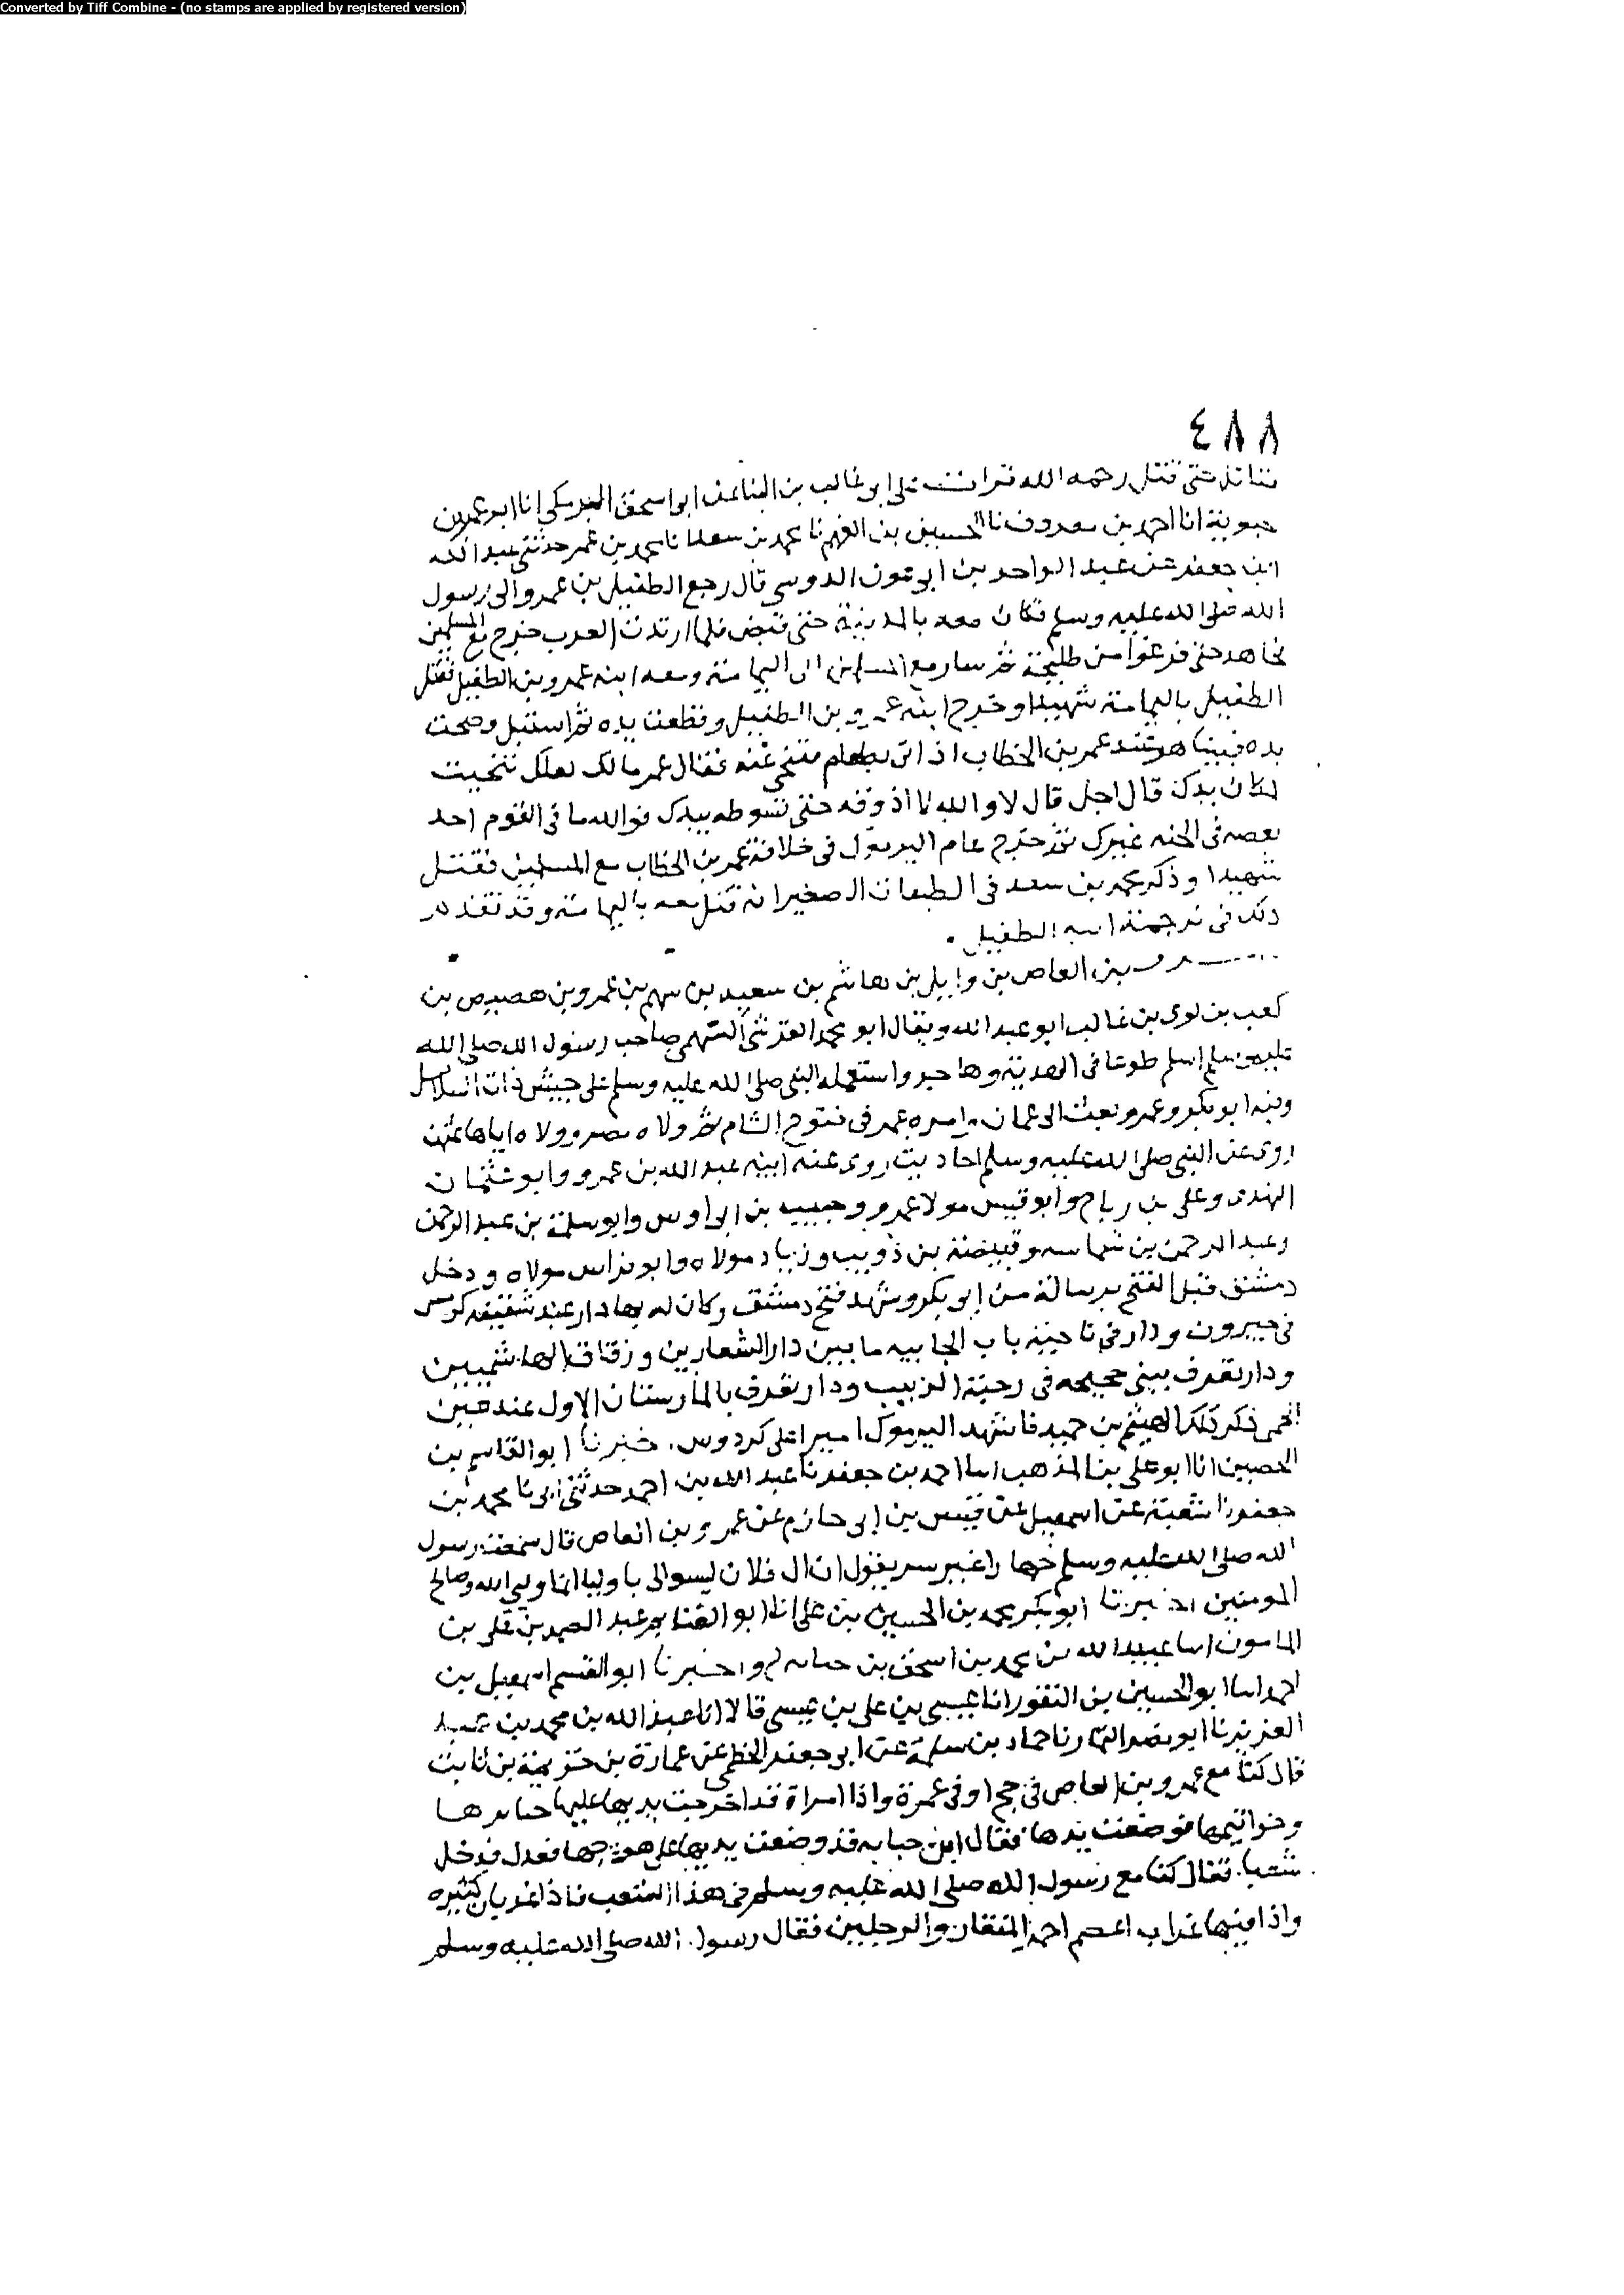 Converted by Tiff Combine - (no stamps are applied by registered version)
٤٨٨
حتى قتل رحمه الله قرات على ابو غالب بن البنا عن ابو اسحق البرمكى انا ابو عمر بن
حيوية انا احمد بن معروف نا الحسين بن الفهم نا محمد بن سعد انا محمد بن عمر حدثنى عبد الله
ابن جعفر عن عبد الواحد بن ابى عون الدوسى قال رجع الطفيل بن عمرو الى رسول
الله صلى الله عليه وسلم فكان معه بالمدينة حتى قبض فلما ارتدت العرب خرج مع المسلمين
فجاهد حتى فرغوا من طليحة ثم سار مع المسلمين الى اليمامة ومعه ابنه عمرو بن الطفيل فقتل
الطفيل باليمامة شهيدا وخرج ابنه عمرو بن الطفيل وقطعت يده ثم استبل وصحت
يده فبينا هو عند عمر بن الخطاب اذ اتى بطعام فتنحى عنه فقال عمر مالك لعلك تنحيت
لمكان يدك قال اجل قال لا والله لا اذوقه حتى تسوطه بيدك فوالله ما فى القوم احد
بعضه فى الجنه غيرك ثم خرج عام اليرموك فى خلافة عمر بن الخطاب مع المسلمين فقتل
شهيدا وذكر محمد بن سعد فى الطبقات الصغير انه قتل معه باليمامة وقد تقدم
ذلك فى ترجمة ابيه الطفيل
بن العاص بن وايل بن هاشم بن سعيد بن سهم بن عمرو بن هصيص بن
كعب بن لوى بن غالب ابو عبد الله ويقال ابو محمد القرشى السهمى صاحب رسول الله صلى الله
عليه وسلم اسلم طوعا فى الهدنة وهاجر واستعمله النبى صلى الله عليه وسلم على جيش ذات السلاسل
وفيه ابو بكر وعمر وبعثه الى عمان وامره عمر فى فتوح الشام ثم ولاه مصر وولاه اياها عثمن
روى عن النبى صلى الله عليه وسلم احاديث روى عنه ابنه عبد الله بن عمرو وابو عثمان
النهدى وعلى بن رباح وابو قيس مولا عمرو وحبيب بن ابى اوس وابو سلمة بن عبد الرحمن
وعبد الرحمن بن شماسه وقبيصة بن ذويب وزياد مولاه وابو فراس مولاه ودخل
دمشق قبل الفتح برسالة من ابو بكر وشهد فتح دمشق وكان له بها دار عند سقيفه كردوس
فى جيرون ودار فى ناحية باب الجابيه ما بين دار الشعارين وزقاق الهاشميين
ودار تعرف ببنى حجيجه فى رحبة الزبيب ودار تعرف بالمارستان الاول عند عين
الحمى ذكر ذلك الهيثم بن حميد فاشهد اليرموك اميرا على كردوس. اخبرنا ابو القاسم بن
الحصين انا ابو على بن المذهب انا احمد بن جعفر نا عبد الله بن احمد حدثنى ابى نا محمد بن
جعفر نا شعبة عن اسمعيل عن قيس بن ابى حازم عن عمرو بن العاص قال سمعت رسول
الله صلى الله عليه وسلم جهارا غير سر يقول ان ال فلان ليسوا لى باوليا انما وليى الله وصالح
المومنين اخبرنا ابو بكر محمد بن الحسين بن على انا ابو الغنايم عبد الصمد بن على بن
المامون انا عبيد الله بن محمد بن اسحق بن حبابه ح واخبرنا ابو القسم اسمعيل بن
احمد انا ابو الحسين بن النقور انا عيسى بن على بن عيسى قالا انا عبد الله بن محمد بن عبد
العزيز نا ابو نصر التمار نا حماد بن سلمة عن ابى جعفر الخطمى عن عمارة بن خزيمة بن ثابت
قال كنا مع عمرو بن العاص فى حج او فى عمرة واذا امراة قد اخرجت يديها عليها حبايرها
وخواتيمها فوضعت يدها فقال ابن حبابه قد وضعت يديها على هودجها فعدل فدخل
شعبا. فقال كنا مع رسول الله صلى الله عليه وسلم فى هذا الشعب فاذا غربان كثيره
واذا فيها غراب اعصم احمر المنقار والرجلين فقال رسول الله صلى الله عليه وسلم